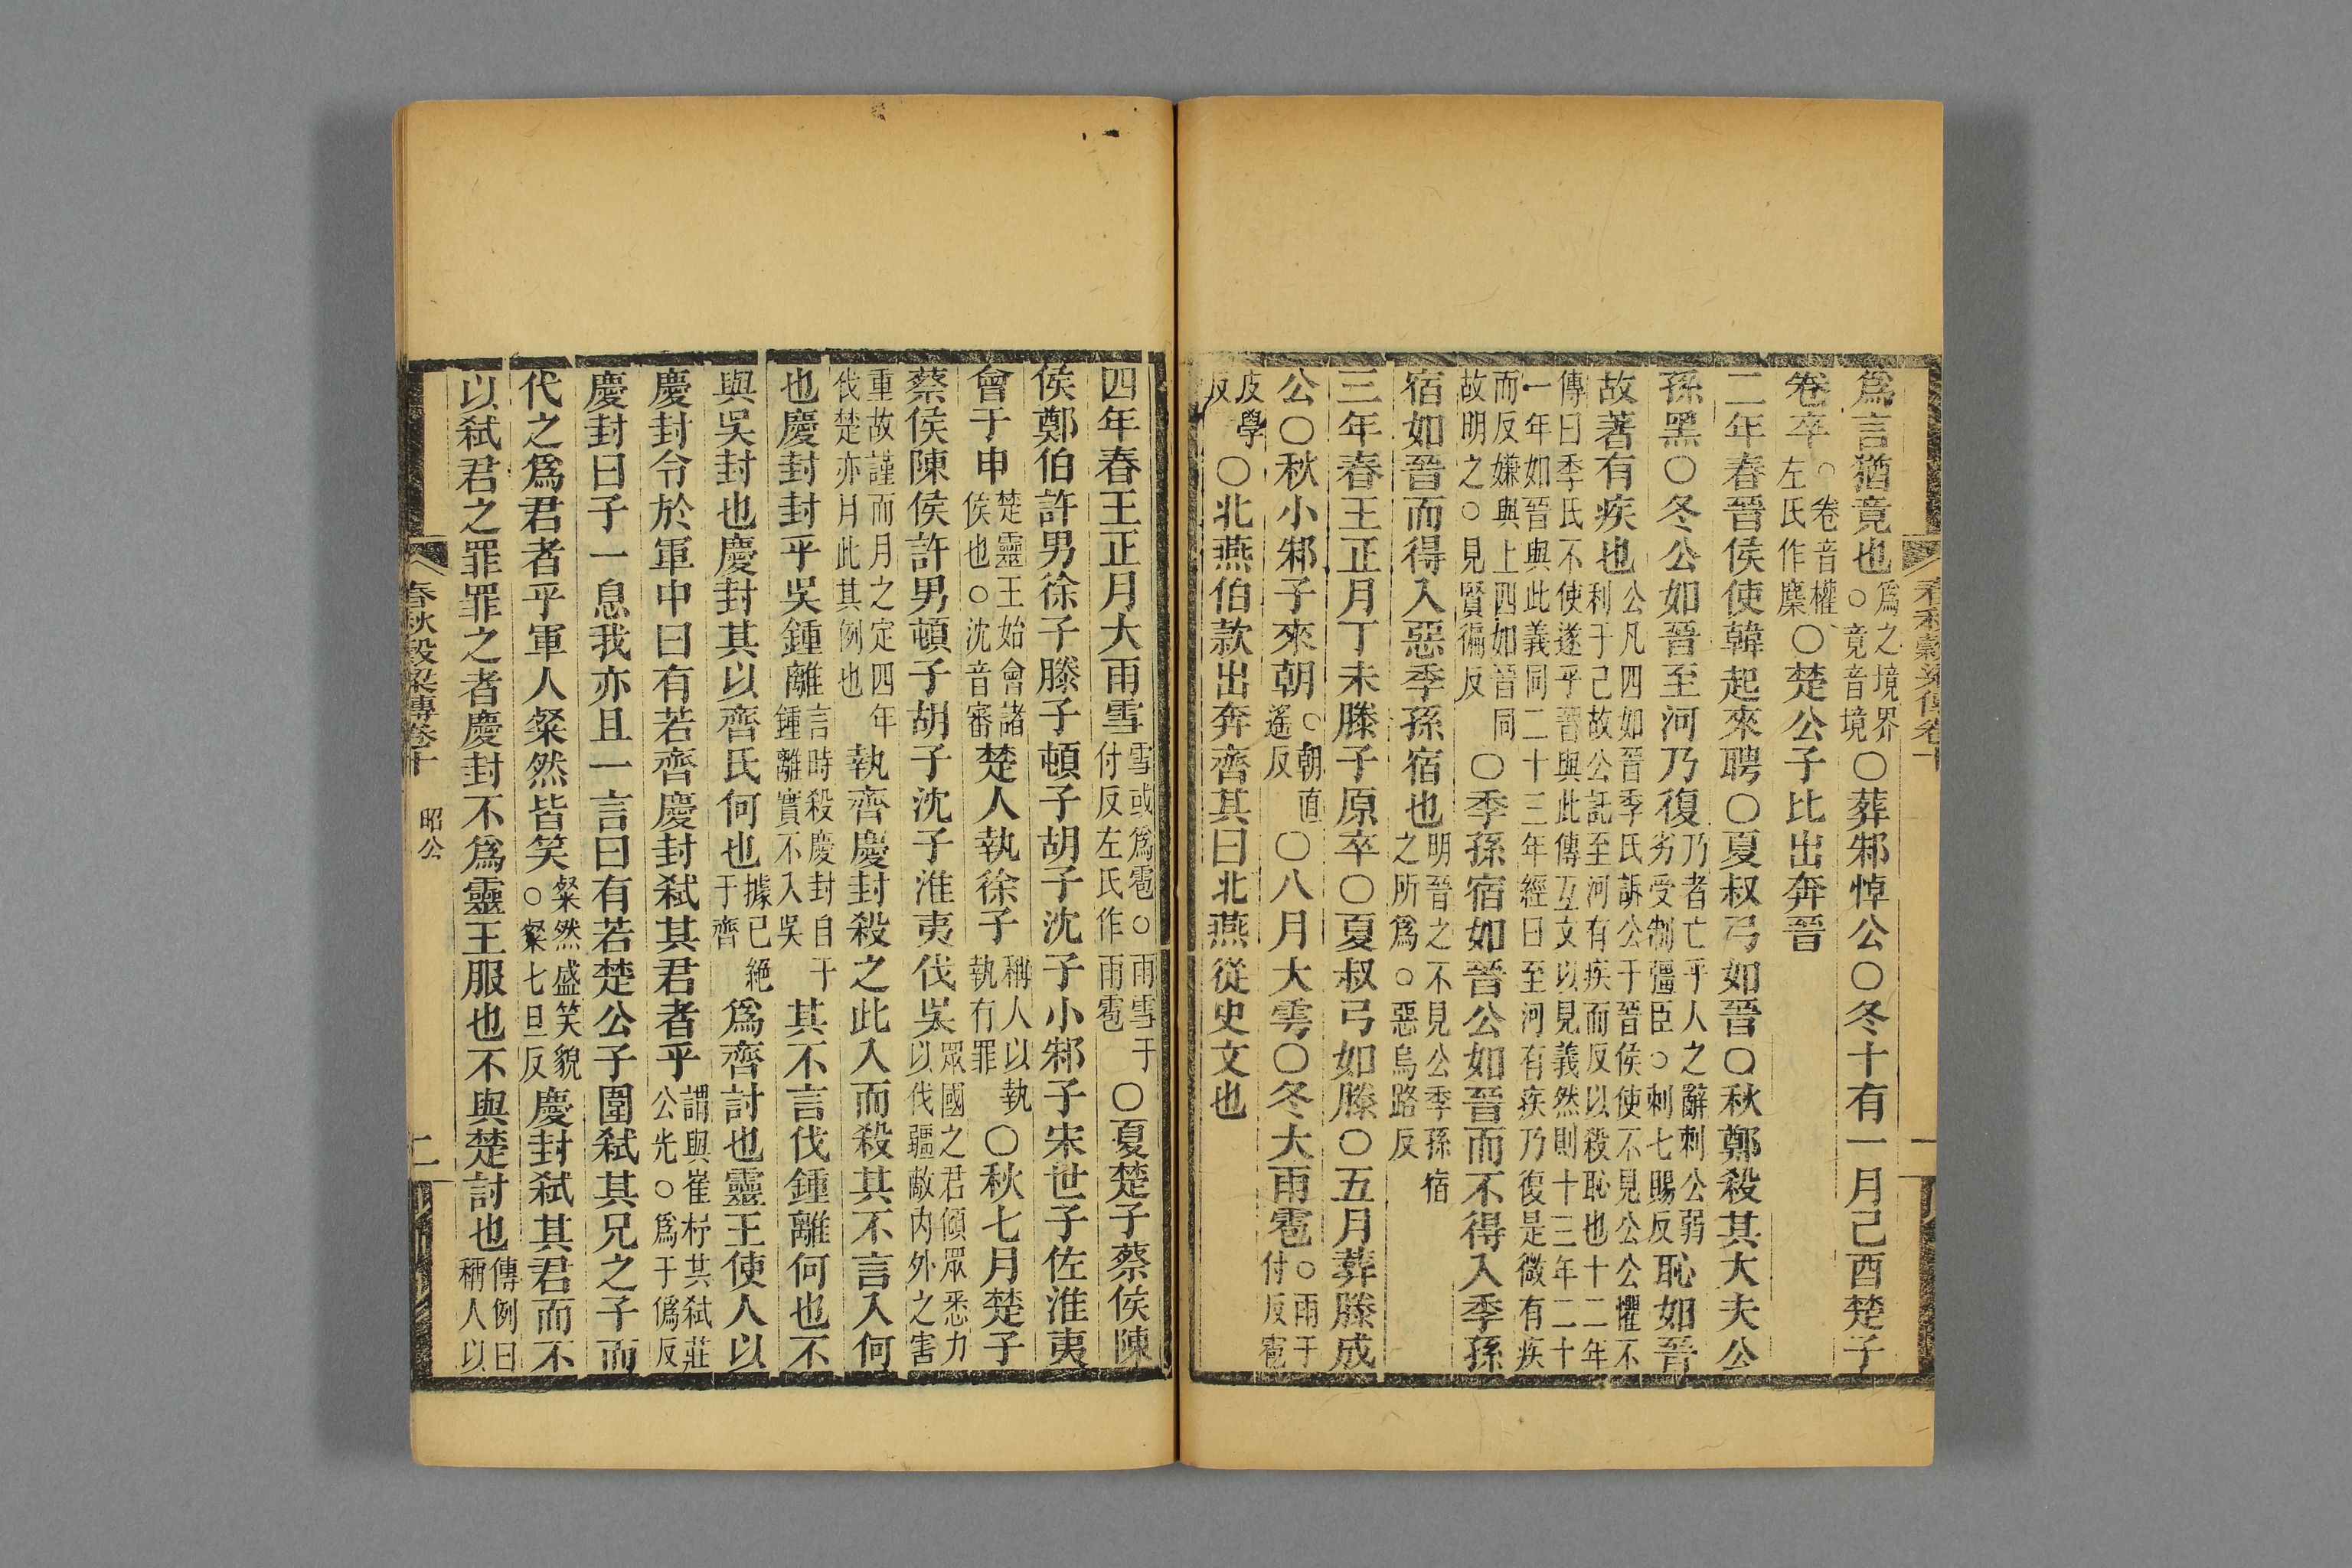 春秋穀梁傳卷十
爲言猶竟也爲之境界○竟音境○葬邾悼公○冬十有一月己酉楚子
卷卒○卷音權左氏作麇○楚公子比出奔晉
二年春晉侯使韓起來聘○夏叔弓如晉○秋鄭殺其大夫公
孫黑○冬公如晉至河乃復乃者亡乎人之辭刺公弱劣受制彊臣○刺七賜反恥如晉
故著有疾也公凡四如晉季氏訴公于晉侯使不見公公懼不利于己故公託至河有疾而反以殺恥也十二年
傳曰季氏不使遂乎晉與此傳互文以見義然則十三年二十一年如晉與此義同二十三年經曰至河有疾乃復是微有疾
而反嫌與上四如晉同故明之○見賢徧反○季孫宿如晉公如晉而不得入季孫
宿如晉而得入惡季孫宿也明晉之不見公季孫宿之所爲○惡烏路反
三年春王正月丁未滕子原卒○夏叔弓如滕○五月葬滕成
公○秋小邾子來朝○朝直遙反○八月大雩○冬大雨雹○雨于付反雹
皮學反○北燕伯款出奔齊其曰北燕從史文也
四年春王正月大雨雪雪或爲雹○雨雪于付反左氏作雨雹○夏楚子蔡侯陳
侯鄭伯許男徐子滕子頓子胡子沈子小邾子宋世子佐淮夷
會于申楚靈王始會諸侯也○沈音審楚人執徐子稱人以執執有罪○秋七月楚子
蔡侯陳侯許男頓子胡子沈子淮夷伐吳眾國之君傾眾悉力以伐彊敵內外之害
重故謹而月之定四年伐楚亦月此其例也執齊慶封殺之此入而殺其不言入何
也慶封封乎吳鍾離言時殺慶封自于鍾離實不入吳其不言伐鍾離何也不
與吳封也慶封其以齊氏何也據已絕于齊爲齊討也靈王使人以
慶封令於軍中曰有若齊慶封弒其君者乎謂與崔杼共弒莊公光○爲于僞反
慶封曰子一息我亦且一言曰有若楚公子圍弒其兄之子而
代之爲君者乎軍人粲然皆笑粲然盛笑貌○粲七旦反慶封弒其君而不
以弒君之罪罪之者慶封不爲靈王服也不與楚討也傳例曰稱人以
春秋穀梁傳卷十 昭公 二